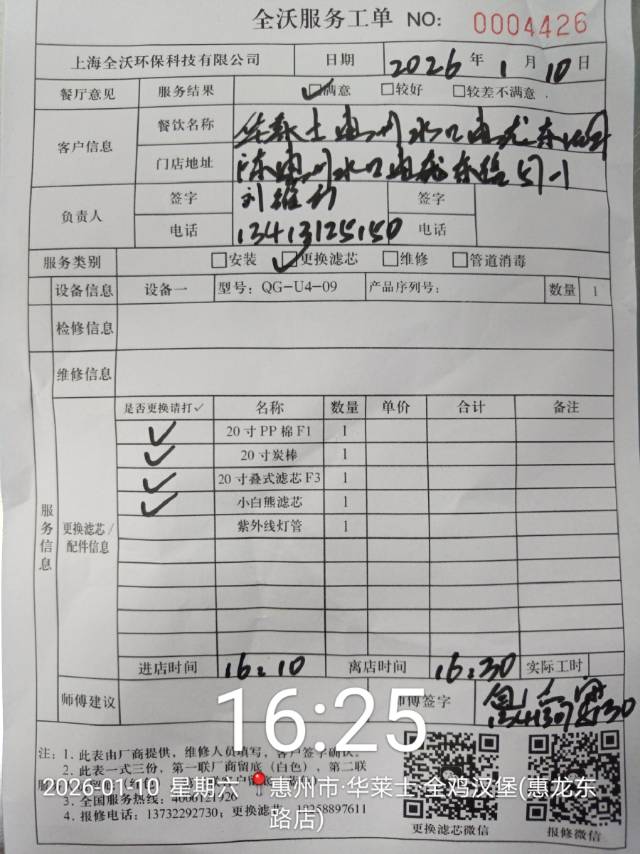 全沃服务工单 NO: 0004426
上海全沃环保科技有限公司 日期 2026 年 1 月 10 日
餐厅意见 服务结果 ☑满意 □较好 □较差不满意.
客户信息 餐饮名称 华莱士惠州水口惠龙东路店
门店地址 惠州水口惠龙东路57-1
负责人 签字 刘维 签字
电话 13413125150 电话
服务类别 □安装 ☑更换滤芯 □维修 □管道消毒
设备信息 设备一 型号: QG-U4-09 产品序列号: 数量 1
检修信息
维修信息
服务信息
更换滤芯/配件信息
是否更换请打✓ 名称 数量 单价 合计 备注
✓ 20寸PP棉F1 1
✓ 20寸炭棒 1
✓ 20寸叠式滤芯F3 1
✓ 小白熊滤芯 1
紫外线灯管 1
进店时间 16:10 离店时间 16:30 实际工时
师傅建议 师傅签字
16:25
注: 1. 此表由厂商提供, 维修人员填写, 客户签字确认.
2. 此表一式三份, 第一联厂商留底 (白色), 第二联
2026-01-10 星期六 惠州市·华莱士·全鸡汉堡(惠龙东路店)
3. 全国服务热线: 4006121926
4. 报修电话: 13732292730; 更换滤芯:
更换滤芯微信 报修微信